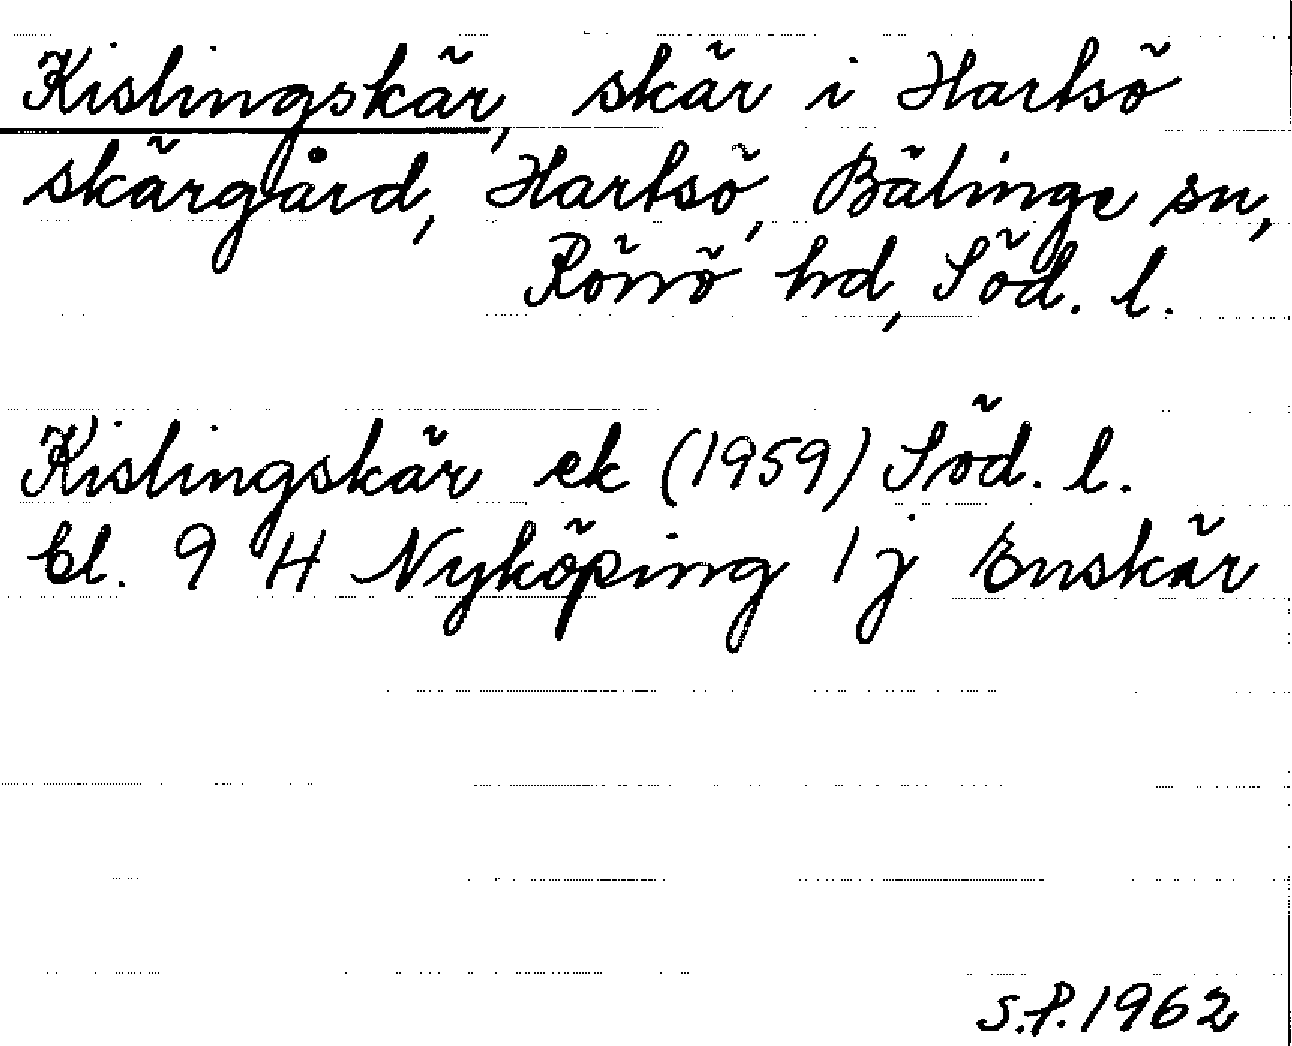 Kislingskär, skär i Hartsö
skärgård, Hartsö, Bälinge sn,
Rönö hd, Söd. l.
Kislingskär ek (1959) Söd. l.
bl. 9 H Nyköping 1 j Enskär
S.P. 1962